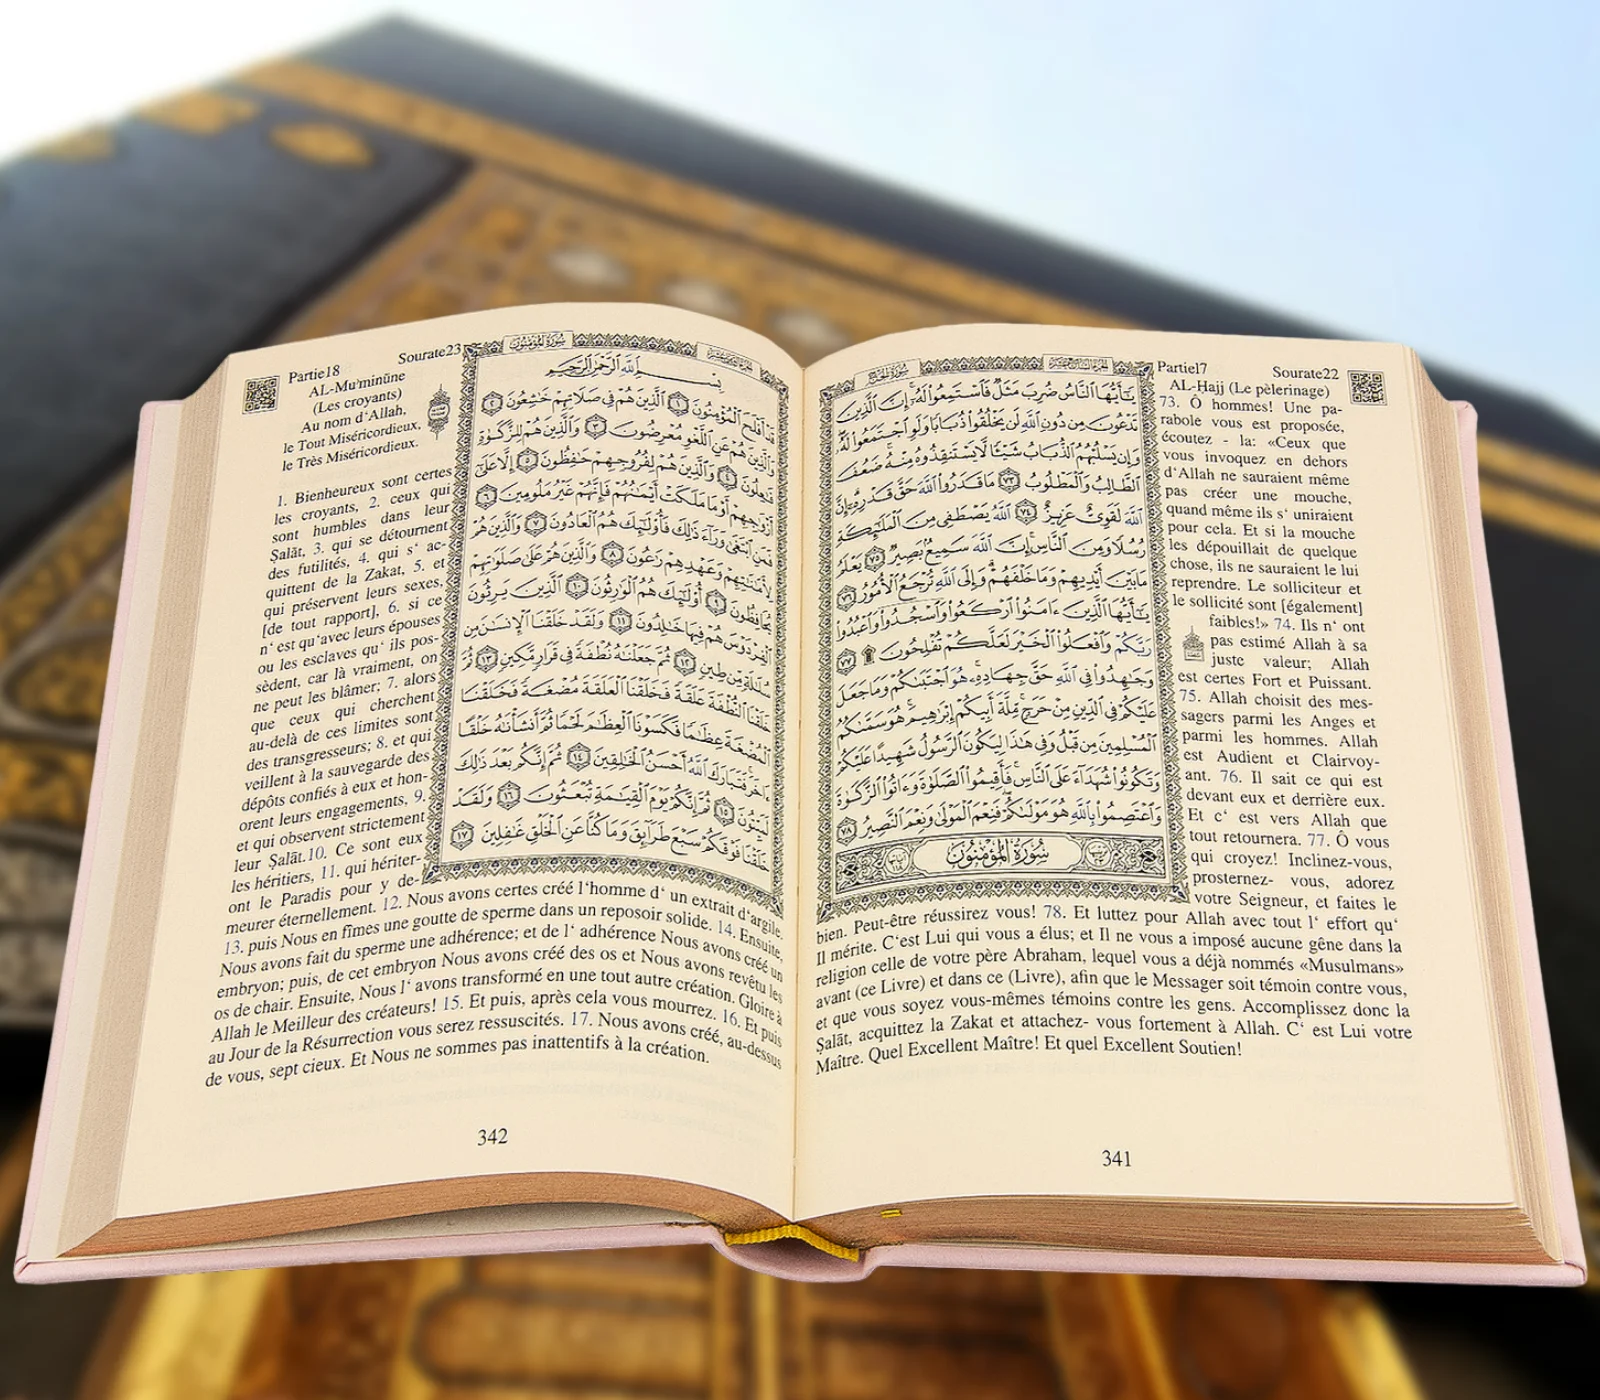 سُورَةُ الحَجِّ
الجُزْءُ السَّابِعَ عَشَرَ
يَٰٓأَيُّهَا ٱلنَّاسُ ضُرِبَ مَثَلٌ فَٱسْتَمِعُوا۟ لَهُۥٓ ۚ إِنَّ ٱلَّذِينَ
تَدْعُونَ مِن دُونِ ٱللَّهِ لَن يَخْلُقُوا۟ ذُبَابًا وَلَوِ ٱجْتَمَعُوا۟ لَهُۥ ۖ
وَإِن يَسْلُبْهُمُ ٱلذُّبَابُ شَيْـًٔا لَّا يَسْتَنقِذُوهُ مِنْهُ ۚ ضَعُفَ
ٱلطَّالِبُ وَٱلْمَطْلُوبُ ٧٣ مَا قَدَرُوا۟ ٱللَّهَ حَقَّ قَدْرِهِۦٓ ۗ إِنَّ
ٱللَّهَ لَقَوِىٌّ عَزِيزٌ ٧٤ ٱللَّهُ يَصْطَفِى مِنَ ٱلْمَلَٰٓئِكَةِ
رُسُلًا وَمِنَ ٱلنَّاسِ ۚ إِنَّ ٱللَّهَ سَمِيعٌۢ بَصِيرٌ ٧٥ يَعْلَمُ
مَا بَيْنَ أَيْدِيهِمْ وَمَا خَلْفَهُمْ ۗ وَإِلَى ٱللَّهِ تُرْجَعُ ٱلْأُمُورُ ٧٦
يَٰٓأَيُّهَا ٱلَّذِينَ ءَامَنُوا۟ ٱرْكَعُوا۟ وَٱسْجُدُوا۟ وَٱعْبُدُوا۟
رَبَّكُمْ وَٱفْعَلُوا۟ ٱلْخَيْرَ لَعَلَّكُمْ تُفْلِحُونَ ۩ ٧٧
وَجَٰهِدُوا۟ فِى ٱللَّهِ حَقَّ جِهَادِهِۦ ۚ هُوَ ٱجْتَبَىٰكُمْ وَمَا جَعَلَ
عَلَيْكُمْ فِى ٱلدِّينِ مِنْ حَرَجٍ ۚ مِّلَّةَ أَبِيكُمْ إِبْرَٰهِيمَ ۚ هُوَ سَمَّىٰكُمُ
ٱلْمُسْلِمِينَ مِن قَبْلُ وَفِى هَٰذَا لِيَكُونَ ٱلرَّسُولُ شَهِيدًا عَلَيْكُمْ
وَتَكُونُوا۟ شُهَدَآءَ عَلَى ٱلنَّاسِ ۚ فَأَقِيمُوا۟ ٱلصَّلَوٰةَ وَءَاتُوا۟ ٱلزَّكَوٰةَ
وَٱعْتَصِمُوا۟ بِٱللَّهِ هُوَ مَوْلَىٰكُمْ ۖ فَنِعْمَ ٱلْمَوْلَىٰ وَنِعْمَ ٱلنَّصِيرُ ٧٨
سُورَةُ المُؤْمِنُونَ
Partie17 Sourate22
AL-Ḥajj (Le pèlerinage)
73. Ô hommes! Une pa-
rabole vous est proposée,
écoutez - la: «Ceux que
vous invoquez en dehors
d‘Allah ne sauraient même
pas créer une mouche,
quand même ils s‘ uniraient
pour cela. Et si la mouche
les dépouillait de quelque
chose, ils ne sauraient le lui
reprendre. Le solliciteur et
le sollicité sont [également]
faibles!» 74. Ils n‘ ont
pas estimé Allah à sa
juste valeur; Allah
est certes Fort et Puissant.
75. Allah choisit des mes-
sagers parmi les Anges et
parmi les hommes. Allah
est Audient et Clairvoy-
ant. 76. Il sait ce qui est
devant eux et derrière eux.
Et c‘ est vers Allah que
tout retournera. 77. Ô vous
qui croyez! Inclinez-vous,
prosternez- vous, adorez
votre Seigneur, et faites le
bien. Peut-être réussirez vous! 78. Et luttez pour Allah avec tout l‘ effort qu‘
Il mérite. C‘est Lui qui vous a élus; et Il ne vous a imposé aucune gêne dans la
religion celle de votre père Abraham, lequel vous a déjà nommés «Musulmans»
avant (ce Livre) et dans ce (Livre), afin que le Messager soit témoin contre vous,
et que vous soyez vous-mêmes témoins contre les gens. Accomplissez donc la
Ṣalāt, acquittez la Zakat et attachez- vous fortement à Allah. C‘ est Lui votre
Maître. Quel Excellent Maître! Et quel Excellent Soutien!
341
Partie18 Sourate23
AL-Mu'minūne
(Les croyants)
Au nom d‘Allah,
le Tout Miséricordieux,
le Très Miséricordieux.
1. Bienheureux sont certes
les croyants, 2. ceux qui
sont humbles dans leur
Ṣalāt, 3. qui se détournent
des futilités, 4. qui s‘ ac-
quittent de la Zakat, 5. et
qui préservent leurs sexes,
[de tout rapport], 6. si ce
n‘ est qu‘avec leurs épouses
ou les esclaves qu‘ ils pos-
sèdent, car là vraiment, on
ne peut les blâmer; 7. alors
que ceux qui cherchent
au-delà de ces limites sont
des transgresseurs; 8. et qui
veillent à la sauvegarde des
dépôts confiés à eux et hon-
orent leurs engagements, 9.
et qui observent strictement
leur Ṣalāt.10. Ce sont eux
les héritiers, 11. qui hériter-
ont le Paradis pour y de-
meurer éternellement. 12. Nous avons certes créé l‘homme d‘ un extrait d‘argile,
13. puis Nous en fîmes une goutte de sperme dans un reposoir solide. 14. Ensuite,
Nous avons fait du sperme une adhérence; et de l‘ adhérence Nous avons créé un
embryon; puis, de cet embryon Nous avons créé des os et Nous avons revêtu les
os de chair. Ensuite, Nous l‘ avons transformé en une tout autre création. Gloire à
Allah le Meilleur des créateurs! 15. Et puis, après cela vous mourrez. 16. Et puis
au Jour de la Résurrection vous serez ressuscités. 17. Nous avons créé, au-dessus
de vous, sept cieux. Et Nous ne sommes pas inattentifs à la création.
سُورَةُ المُؤْمِنُونَ
بِسْمِ ٱللَّهِ ٱلرَّحْمَٰنِ ٱلرَّحِيمِ
قَدْ أَفْلَحَ ٱلْمُؤْمِنُونَ ١ ٱلَّذِينَ هُمْ فِى صَلَاتِهِمْ خَٰشِعُونَ ٢
وَٱلَّذِينَ هُمْ عَنِ ٱللَّغْوِ مُعْرِضُونَ ٣ وَٱلَّذِينَ هُمْ لِلزَّكَوٰةِ
فَٰعِلُونَ ٤ وَٱلَّذِينَ هُمْ لِفُرُوجِهِمْ حَٰفِظُونَ ٥ إِلَّا عَلَىٰٓ
أَزْوَٰجِهِمْ أَوْ مَا مَلَكَتْ أَيْمَٰنُهُمْ فَإِنَّهُمْ غَيْرُ مَلُومِينَ ٦
فَمَنِ ٱبْتَغَىٰ وَرَآءَ ذَٰلِكَ فَأُو۟لَٰٓئِكَ هُمُ ٱلْعَادُونَ ٧ وَٱلَّذِينَ هُمْ
لِأَمَٰنَٰتِهِمْ وَعَهْدِهِمْ رَٰعُونَ ٨ وَٱلَّذِينَ هُمْ عَلَىٰ صَلَوَٰتِهِمْ
يُحَافِظُونَ ٩ أُو۟لَٰٓئِكَ هُمُ ٱلْوَٰرِثُونَ ١٠ ٱلَّذِينَ يَرِثُونَ
ٱلْفِرْدَوْسَ هُمْ فِيهَا خَٰلِدُونَ ١١ وَلَقَدْ خَلَقْنَا ٱلْإِنسَٰنَ مِن
سُلَٰلَةٍ مِّن طِينٍ ١٢ ثُمَّ جَعَلْنَٰهُ نُطْفَةً فِى قَرَارٍ مَّكِينٍ ١٣ ثُمَّ
خَلَقْنَا ٱلنُّطْفَةَ عَلَقَةً فَخَلَقْنَا ٱلْعَلَقَةَ مُضْغَةً فَخَلَقْنَا
ٱلْمُضْغَةَ عِظَٰمًا فَكَسَوْنَا ٱلْعِظَٰمَ لَحْمًا ثُمَّ أَنشَأْنَٰهُ خَلْقًا
ءَاخَرَ ۚ فَتَبَارَكَ ٱللَّهُ أَحْسَنُ ٱلْخَٰلِقِينَ ١٤ ثُمَّ إِنَّكُم بَعْدَ ذَٰلِكَ
لَمَيِّتُونَ ١٥ ثُمَّ إِنَّكُمْ يَوْمَ ٱلْقِيَٰمَةِ تُبْعَثُونَ ١٦ وَلَقَدْ
خَلَقْنَا فَوْقَكُمْ سَبْعَ طَرَآئِقَ وَمَا كُنَّا عَنِ ٱلْخَلْقِ غَٰفِلِينَ ١٧
342